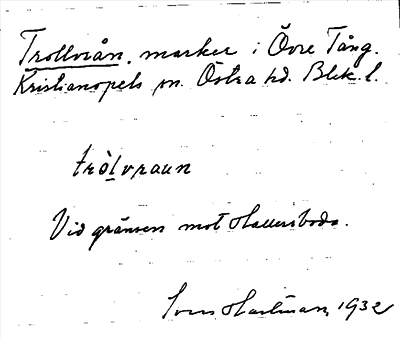 Trollvrån. marker i Övre Tång.
Kristianopels sn. Östra hd. Blek. l.
tròlvraun
Vid gränsen mot Hallersboda.
Sven Hartman, 1932